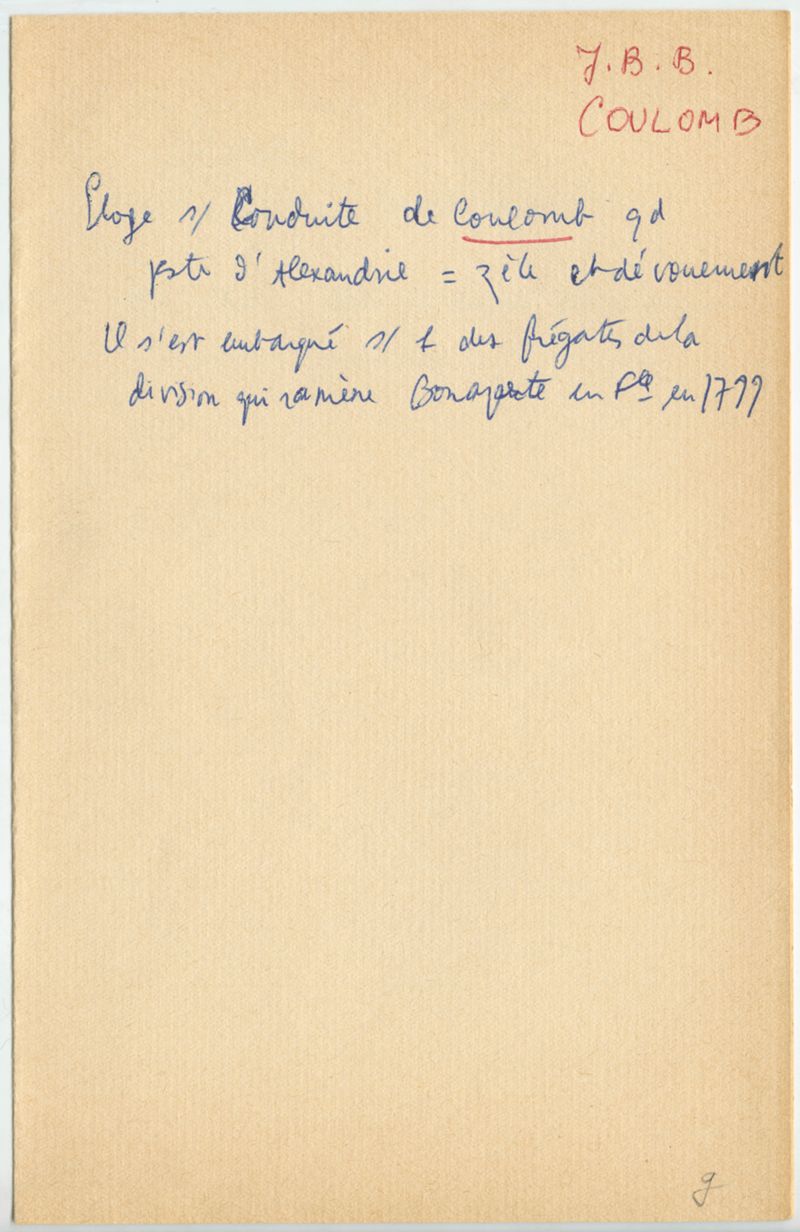 J. B. B.
COULOMB
Eloge s/ Conduite de Coulomb qd
peste d'Alexandrie = zèle et dévouement
Il s'est embarqué s/ 1 des frégates de la
division qui ramène Bonaparte en Fce en 1799
g